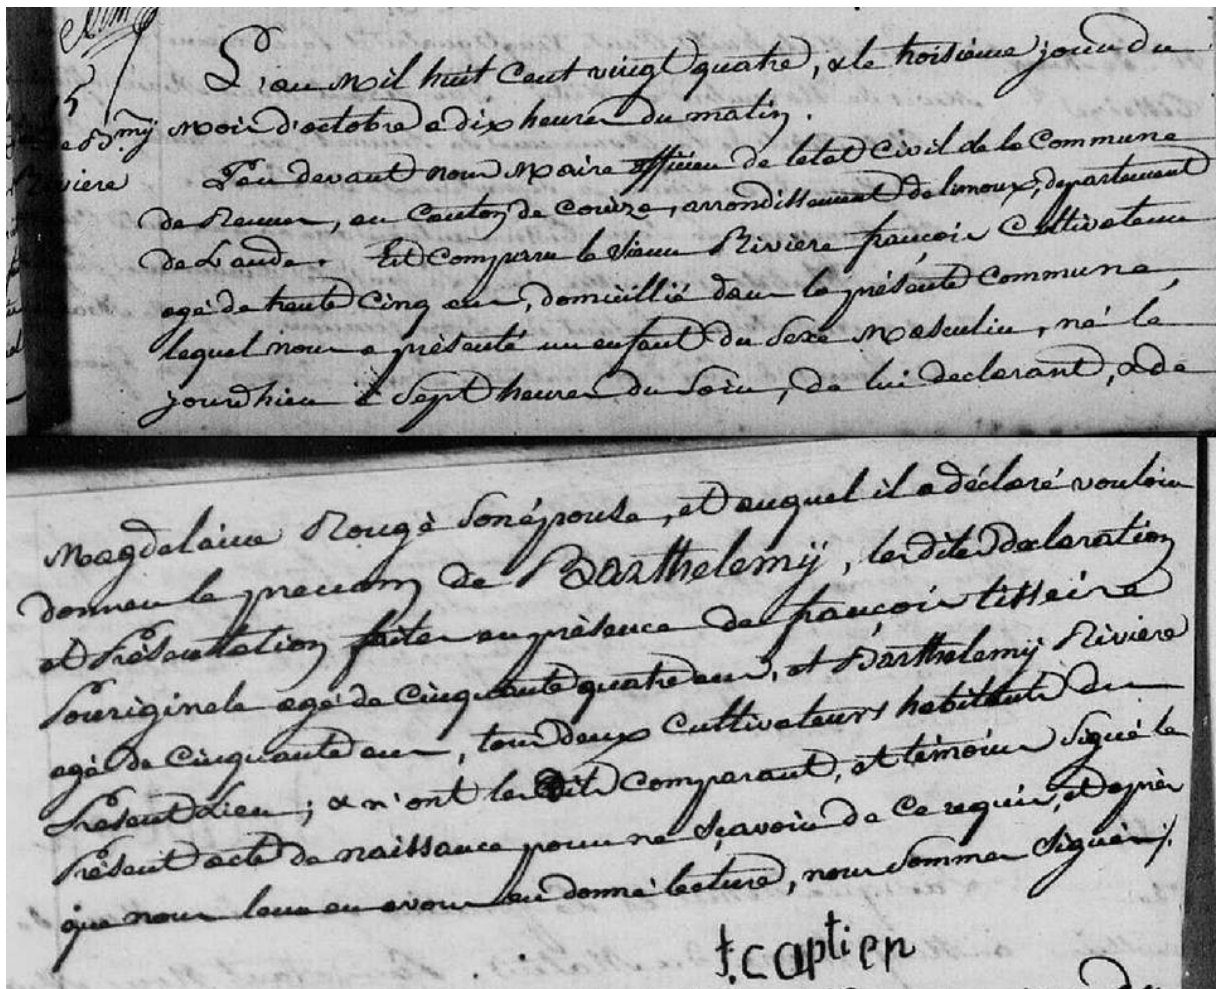 L'an mil huit Cent vingt quatre, & le troisieme jour du
15
mois d'octobre a dix heures du matin.
Riviere
Par devant nous Maire officier de letat Civil de la Commune
de Rennes, au Canton de Couiza, arrondissement de limoux, departement
de L'aude. Est Comparu le Sieur Riviere françois Cultivateur
agé de trente Cinq ans, domicillié dans la présente Commune,
lequel nous a présenté un enfant du Sexe Masculin, né le
jourdhieu à Sept heures du Soir, de lui declarant, & de
Magdelaine Rougé Son épouse, et auquel il a déclaré vouloir
donner le prenom de Barthelemÿ, les dites declaration
et Présentation faites en présence de françois tisseire
Pouriginele agé de Cinquante quatre ans, et Barthelemÿ Riviere
agé de Cinquante ans, tous deux Cultivateurs habitants du
Présent Lieu; & n'ont les dits Comparant, et témoins Signé le
Présent acte de naissance pour ne Sçavoir de Ce requis, et après
que nous leur en avons eu donné lecture, nous Sommes Signés/.
f. captier